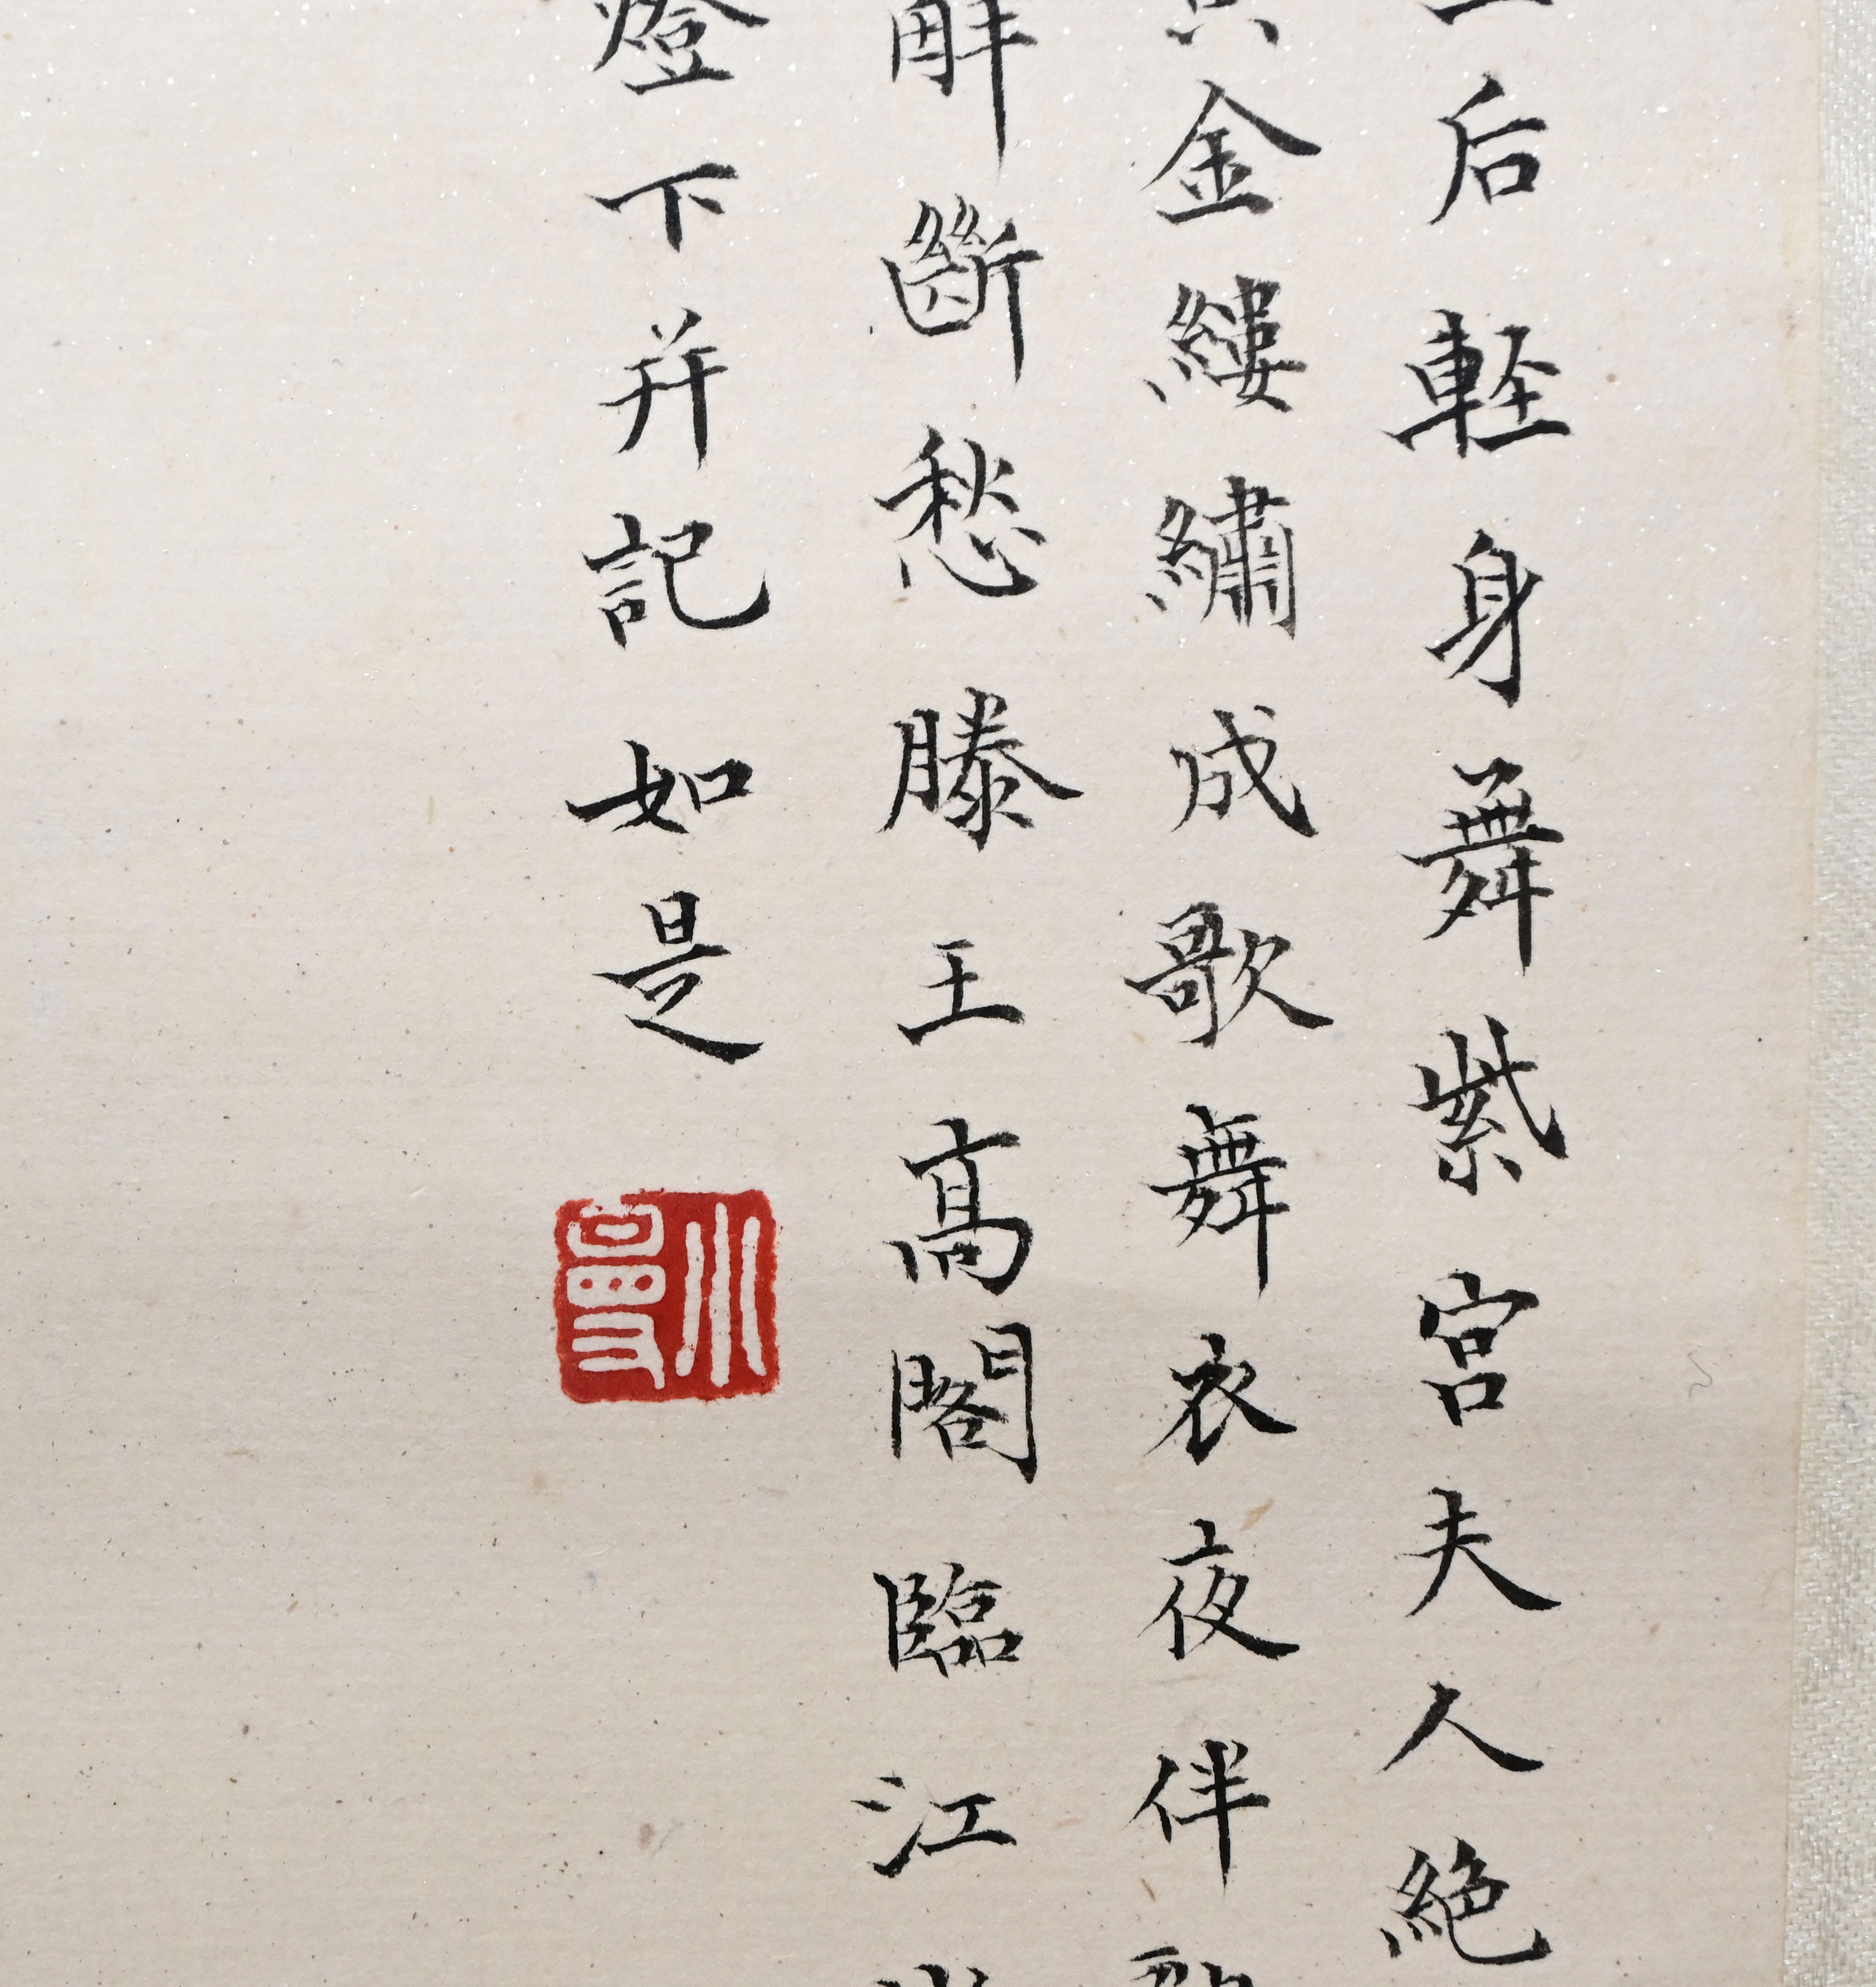 后軽身舞紫宮夫人絶
金縷繡成歌舞衣夜伴
解斷愁滕王高閣臨江
燈下并記如是
小曼